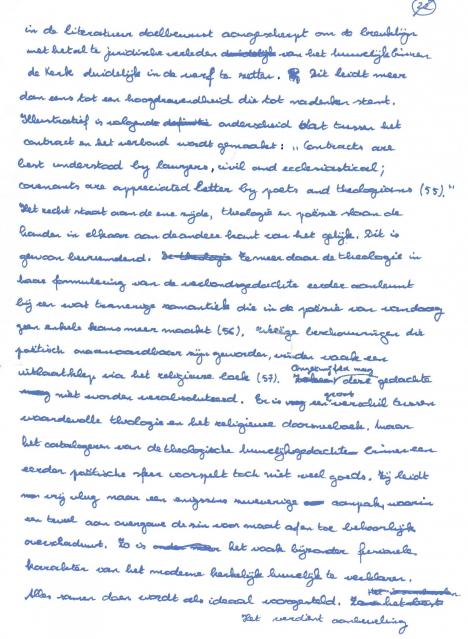 72
in de literatuur doelbewust aangescherpt om de breuklijn
met het al te juridische verleden van het huwelijk binnen
de Kerk duidelijk in de verf te zetten. Dit leidt meer
dan eens tot een hoogdravendheid die tot nadenken stemt.
Illustratief is volgende onderscheid dat tussen het
contract en het verbond wordt gemaakt: "Contracts are
best understood by lawyers, civil and ecclesiastical;
covenants are appreciated better by poets and theologians (55)."
Het recht staat aan de ene zijde, theologie en poëzie slaan de
handen in elkaar aan de andere kant van het gelijk. Dit is
gewoon bevreemdend. Temeer daar de theologie in
haar formulering van de verbondsgedachte eerder aanleunt
bij een wat tranerige romantiek die in de poëzie van vandaag
geen enkele kans meer maakt (56). Zulke beschouwingen die
poëtisch onverwoordbaar zijn geworden, vinden vaak een
uitlaatklep via het religieuze boek (57). Ongetwijfeld mag deze gedachte
niet worden verabsoluteerd. Er is een groot verschil tussen
waardevolle theologie en het religieuze doorsneeboek. Maar
het catalogeren van de theologische huwelijksgedachte binnen een
eerder poëtische sfeer voorspelt toch niet veel goeds. Zij leidt
vrij vlug naar een enigszins zweverige aanpak, waarin
een teveel aan overgave de zin voor maat af en toe behoorlijk
overschaduwt. Zo is het vaak bijzonder fervente
karakter van het moderne kerkelijk huwelijk te verklaren.
Alles samen dan wordt als ideaal voorgesteld.
Het verdient aanbeveling